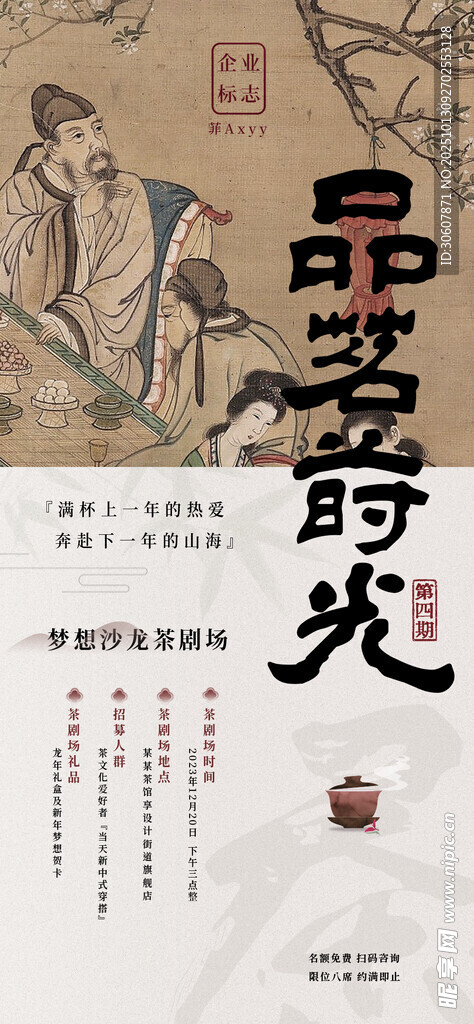 企业
标志
菲Axyy
品茗时光
第四期
『满杯上一年的热爱
奔赴下一年的山海』
梦想沙龙茶剧场
茶剧场时间
2023年12月20日 下午三点整
茶剧场地点
某某茶馆享设计街道旗舰店
招募人群
茶文化爱好者『当天新中式穿搭』
茶剧场礼品
龙年礼盒及新年梦想贺卡
名额免费 扫码咨询
限位八席 约满即止
ID:30607871 NO:20251013092702553128
昵享网 www.nipic.cn